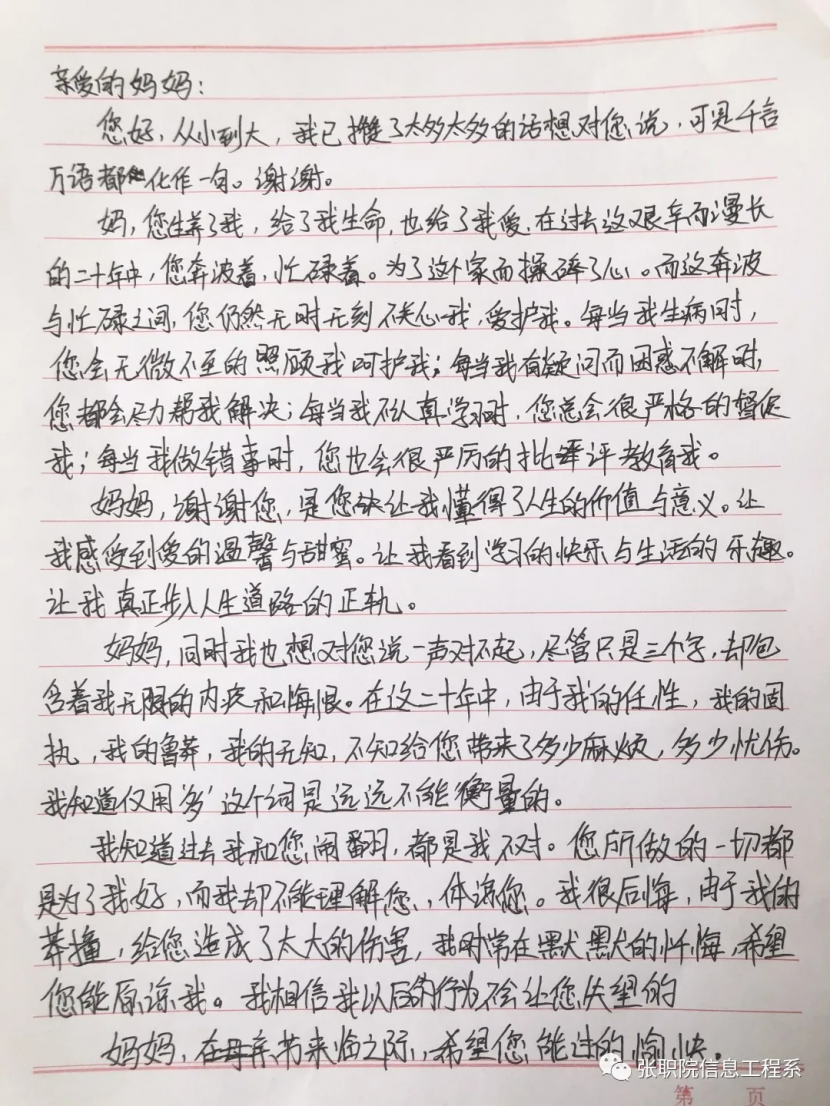 亲爱的妈妈：
您好，从小到大，我已攒了太多太多的话想对您说，可是千言
万语都化作一句。谢谢。
妈，您生养了我，给了我生命，也给了我爱，在过去这艰辛而漫长
的二十年中，您奔波着，忙碌着。为了这个家而操碎了心。而这奔波
与忙碌之间，您仍然无时无刻不关心我，爱护我。每当我生病时，
您会无微不至的照顾我呵护我；每当我有疑问而困惑不解时，
您都会尽力帮我解决；每当我不认真学习时，您总会很严格的督促
我；每当我做错事时，您也会很严厉的批评教育我。
妈妈，谢谢您，是您让我懂得了人生的价值与意义。让
我感受到爱的温馨与甜蜜。让我看到学习的快乐与生活的乐趣。
让我真正步入人生道路的正轨。
妈妈，同时我也想对您说一声对不起，尽管只是三个字，却包
含着我无限的内疚和悔恨。在这二十年中，由于我的任性，我的固
执，我的鲁莽，我的无知，不知给您带来了多少麻烦，多少忧伤。
我知道仅用‘多’这个词是远远不能衡量的。
我知道过去我和您闹翻，都是我不对。您所做的一切都
是为了我好，而我却不能理解您，体谅您。我很后悔，由于我的
莽撞，给您造成了太大的伤害，我时常在默默的忏悔，希望
您能原谅我。我相信我以后的行为不会让您失望的
妈妈，在母亲节来临之际，希望您能过的愉快。
张职院信息工程系
第 页